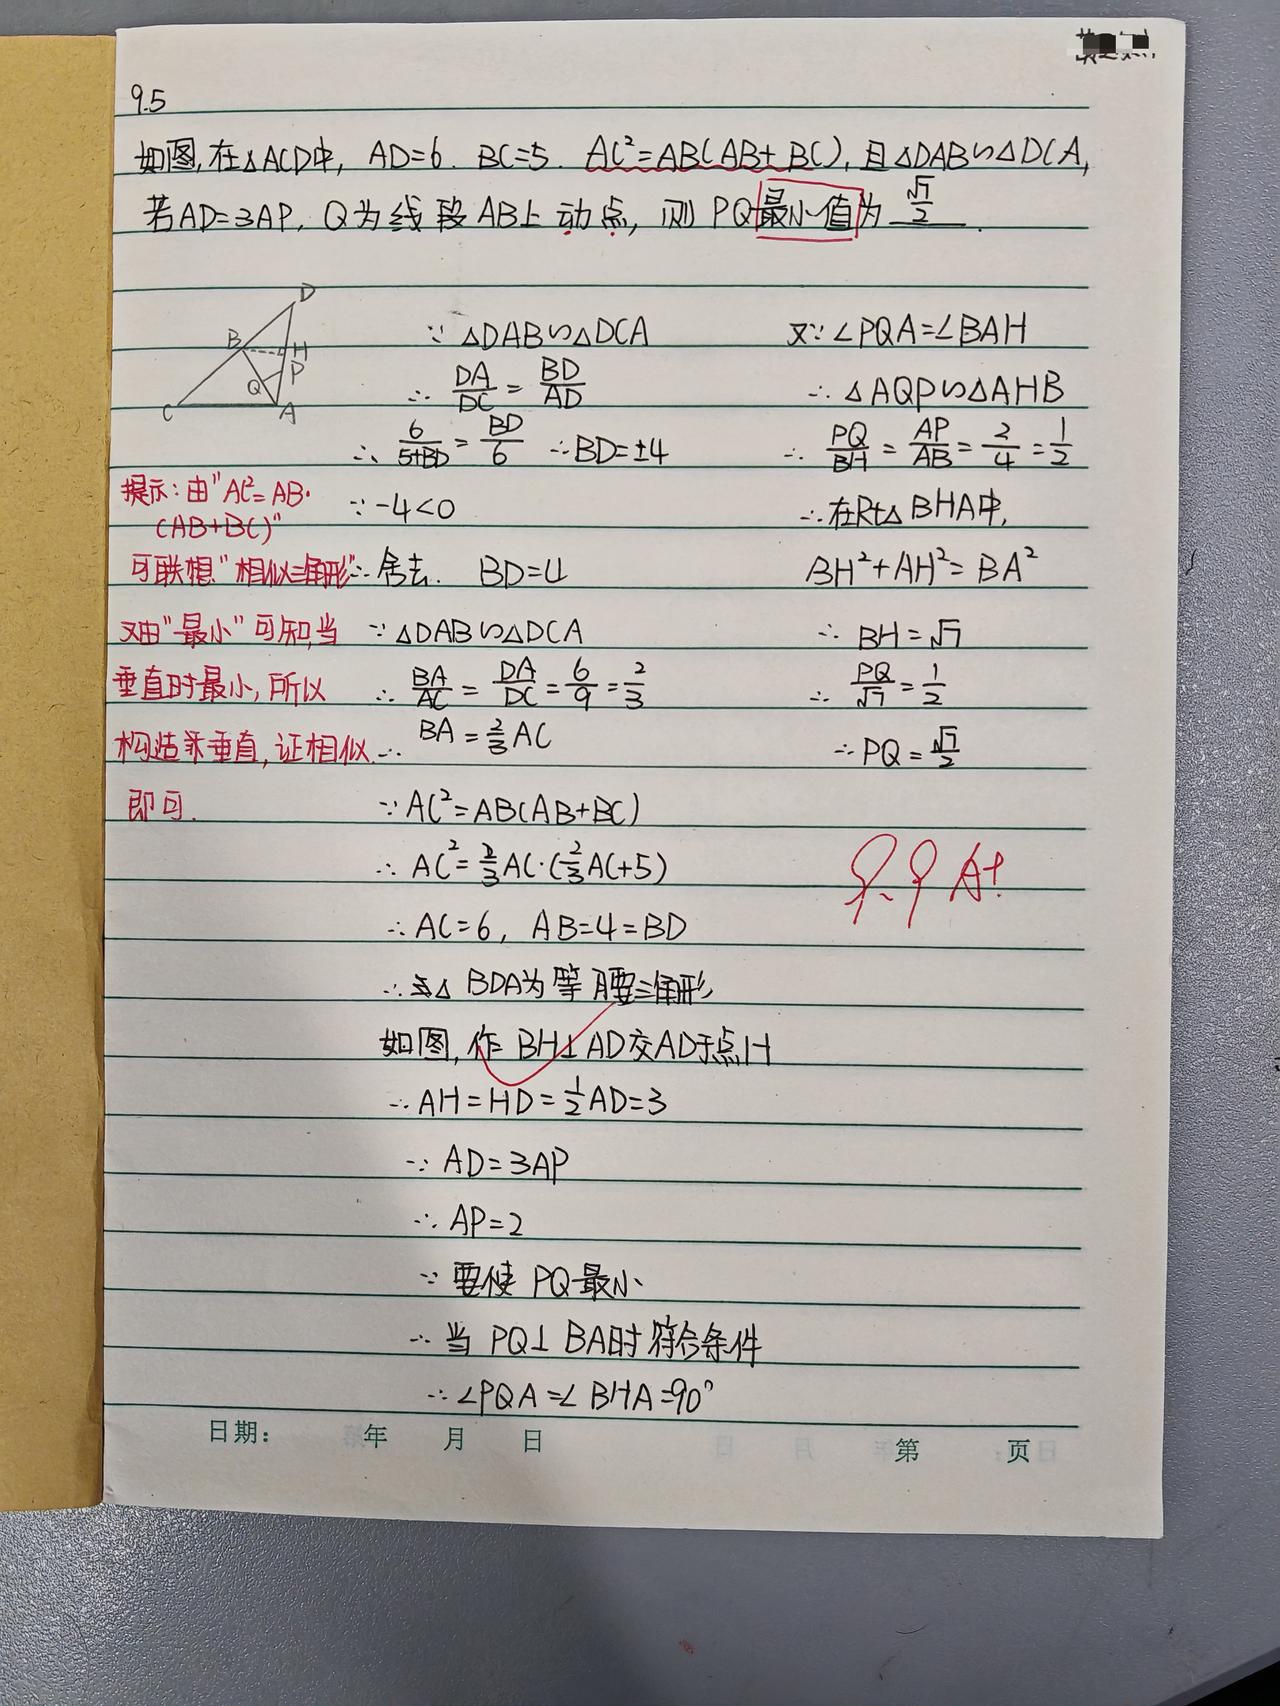 9.5
如图,在△ACD中, AD=6. BC=5. AC²=AB(AB+BC), 且△DAB∽△DCA,
若AD=3AP, Q为线段AB上动点, 则PQ最小值为 √7/2 .
D
B
H
P
Q
C
A
∵ △DAB∽△DCA
∴ DA/DC = BD/AD
∴ 6/5+BD = BD/6 ∴BD=±4
∵ -4<0
∴ 舍去. BD=4
∵ △DAB∽△DCA
∴ BA/AC = DA/DC = 6/9 = 2/3
∴ BA=2/3AC
∵ AC²=AB(AB+BC)
∴ AC²=2/3AC·(2/3AC+5)
∴ AC=6, AB=4=BD
∴ △ BDA为等腰三角形
如图,作BH⊥AD交AD于点H
∴ AH=HD=1/2AD=3
∵ AD=3AP
∴ AP=2
∵ 要使PQ最小
∴ 当PQ⊥BA时符合条件
∴ ∠PQA=∠BHA=90°
又∵ ∠PQA=∠BAH
∴ △AQP∽△AHB
∴ PQ/BH = AP/AB = 2/4 = 1/2
∴ 在Rt△BHA中,
BH²+AH²=BA²
∴ BH=√7
∴ PQ/√7 = 1/2
∴ PQ=√7/2
提示:由"AC²=AB·
(AB+BC)"
可联想"相似三角形"
又由"最小"可知,当
垂直时最小,所以
构造垂直,证相似
即可.
A+
日期: 年 月 日 第 页